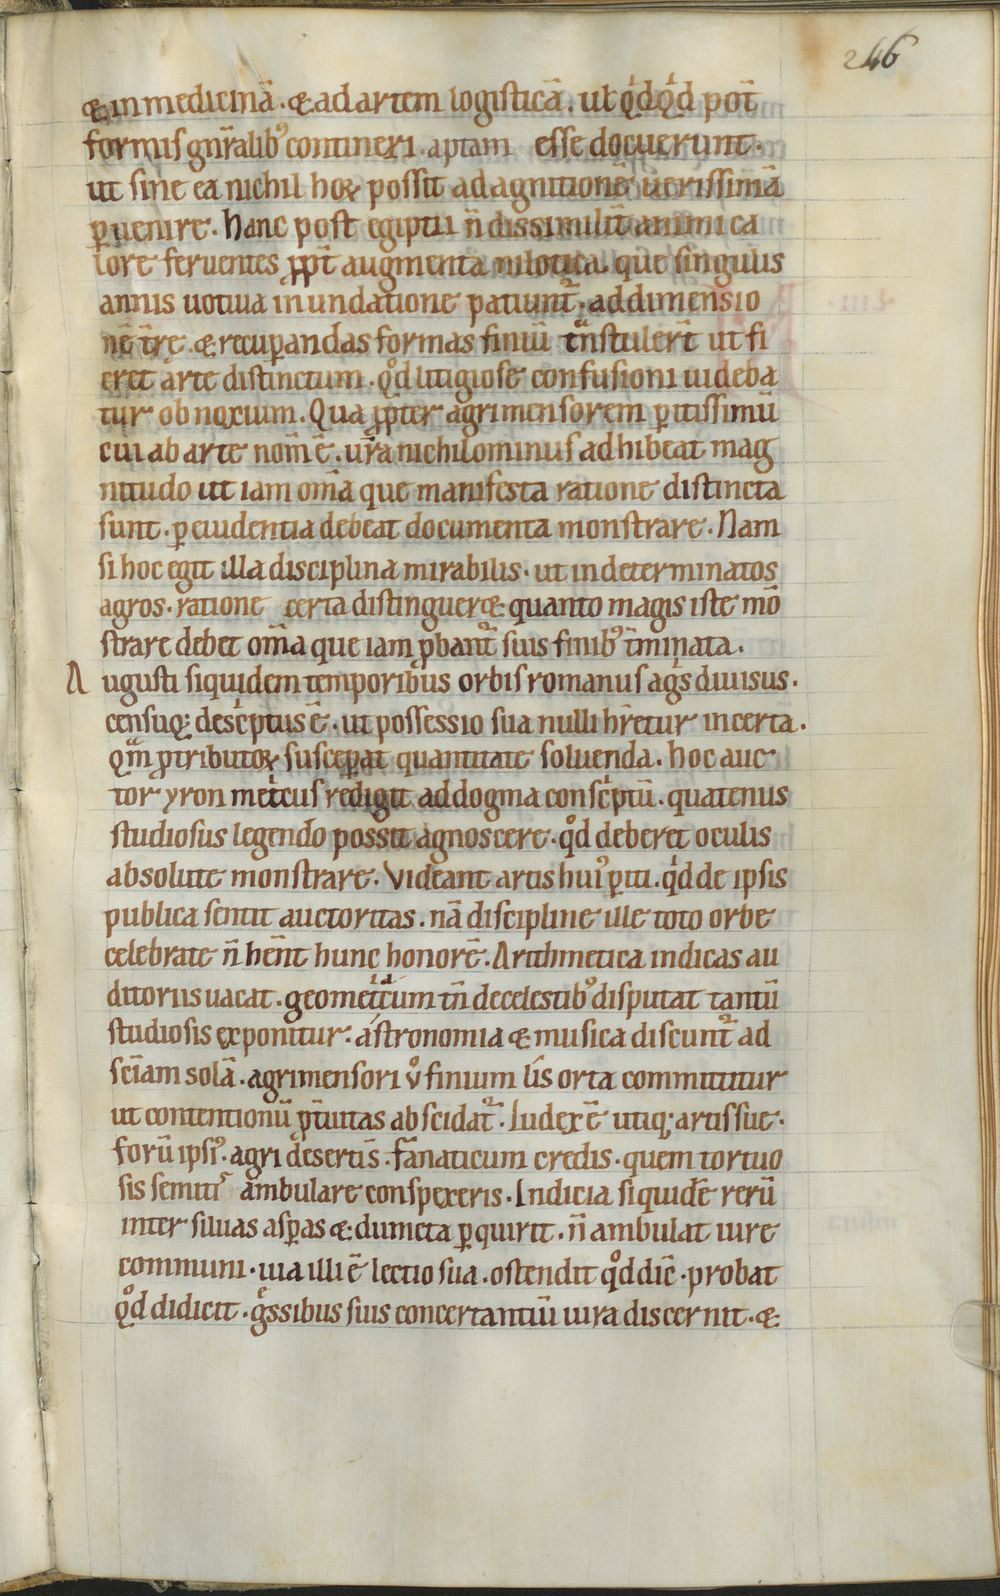 246
& in medicinā. & ad artem logisticā. ut qͥdqͥd potͭ
formis gn̄ralibꝰ contineri. aptam esse docuerunt.
ut sine ea nichil hoꝝ possit ad agnitionē uerissimā
ꝑuenire. Hanc post egiptii n̄ dissimilit̄ animi ca
lore feruentes ꝓpt̄ augmenta nilotica. que singulis
annis uotiua inundatione patiunt᷑. ad dimensio
nē t̄re. & recuꝑandas formas finiū tͣnstuler̄t ut fi
eret arte distinctum. qͦd litigiose confusioni uideba
tur obnoxium. Qua ꝓpter agrimensorem ꝑitissimū
cui ab arte nom̄ ē. ur̄a nichilominus adhibeat mag
nitudo ut iam om̄a que manifesta ratione distincta
sunt. ꝑ euidentia debeat documenta monstrare. Nam
si hoc egit illa disciplina mirabilis. ut indeterminatos
agros. ratione certa distinguer&. quanto magis iste mō
strare debet om̄a que iam ꝓbant᷑ suis finibꝰ t̄minata.
Augusti siquidem temporibus orbis romanus agͥs diuisus.
censuqꝫ descͥptus ē. ut possessio sua nulli hr̄etur incerta.
qͣm ꝓ tributoꝝ susceꝑat quantitate soluenda. hoc auc
tor yron metͥcus redigit ad dogma conscͥptū. quatenus
studiosus legendo possit agnoscere. qͦd deberet oculis
absolute monstrare. Videant artis huiꝰ ꝑiti. qͥd de ipsis
publica sentit auctoritas. nā discipline ille toto orbe
celebrate n̄ hēnt hunc honorē. Arithmetica indicas au
ditoriis uacat. geometͥcum tn̄ de celestibꝰ disputat tantū
studiosis exponitur. astronomia & musica discunt᷑ ad
scīam solā. agrimensori v̊ finium lis orta committitur
ut contentionū ꝓt̄uitas abscidat᷑. Iudex ē utiqꝫ artis sue.
forū ipsiꝰ. agri desertis. fanaticum credis. quem tortuo
sis semitis ambulare conspexeris. Indicia siquidē rerū
inter siluas asꝑas & dumeta ꝑquirit. n̄ ambulat iure
communi. uia illi ē lectio sua. ostendit qͦd dic̄. probat
qͦd didicit. gͤssibus suis concertantiū iura discernit. &